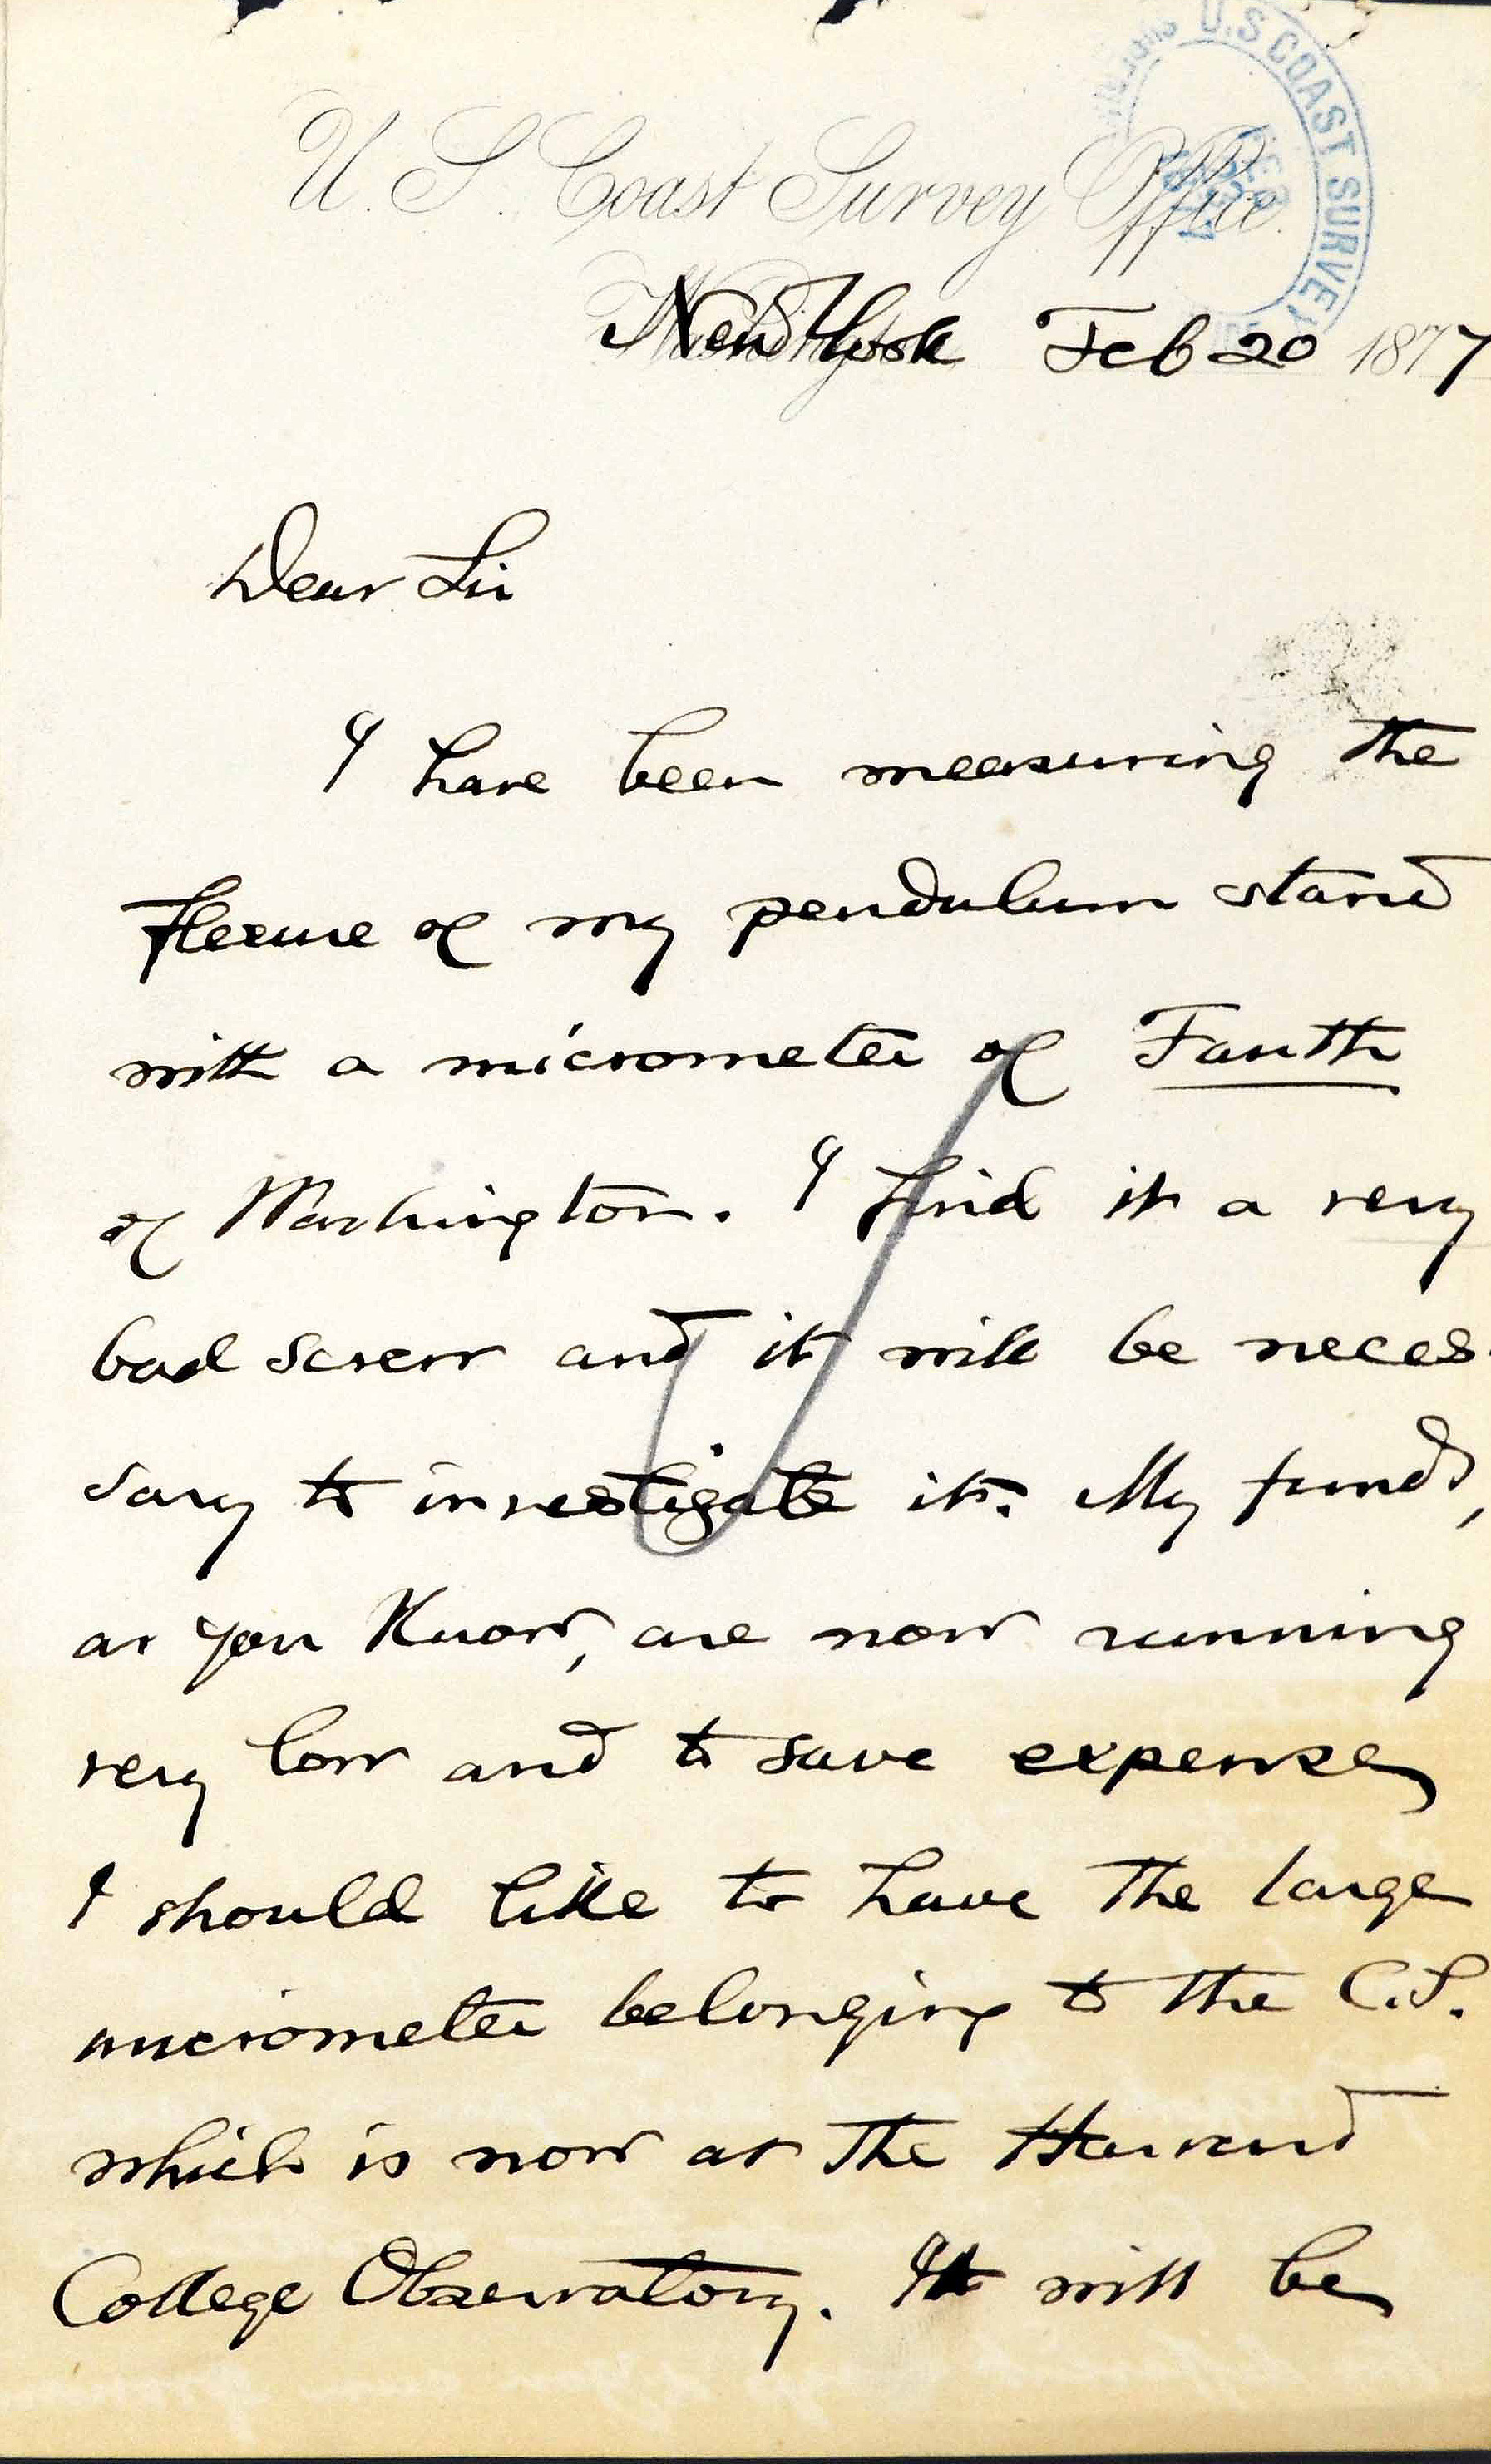 U.S. COAST SURVEY
FEB
1877
U. S. Coast Survey Office.
New York Feb 20 1877
Dear Sir
I have been measuring the
flexure of my pendulum stand
with a micrometer of Fauth
of Washington. I find it a very
bad screw and it will be neces-
sary to investigate it. My funds,
as you know, are now running
very low and to save expense
I should like to have the large
micrometer belonging to the C.S.
which is now at the Harvard
College Observatory. It will be